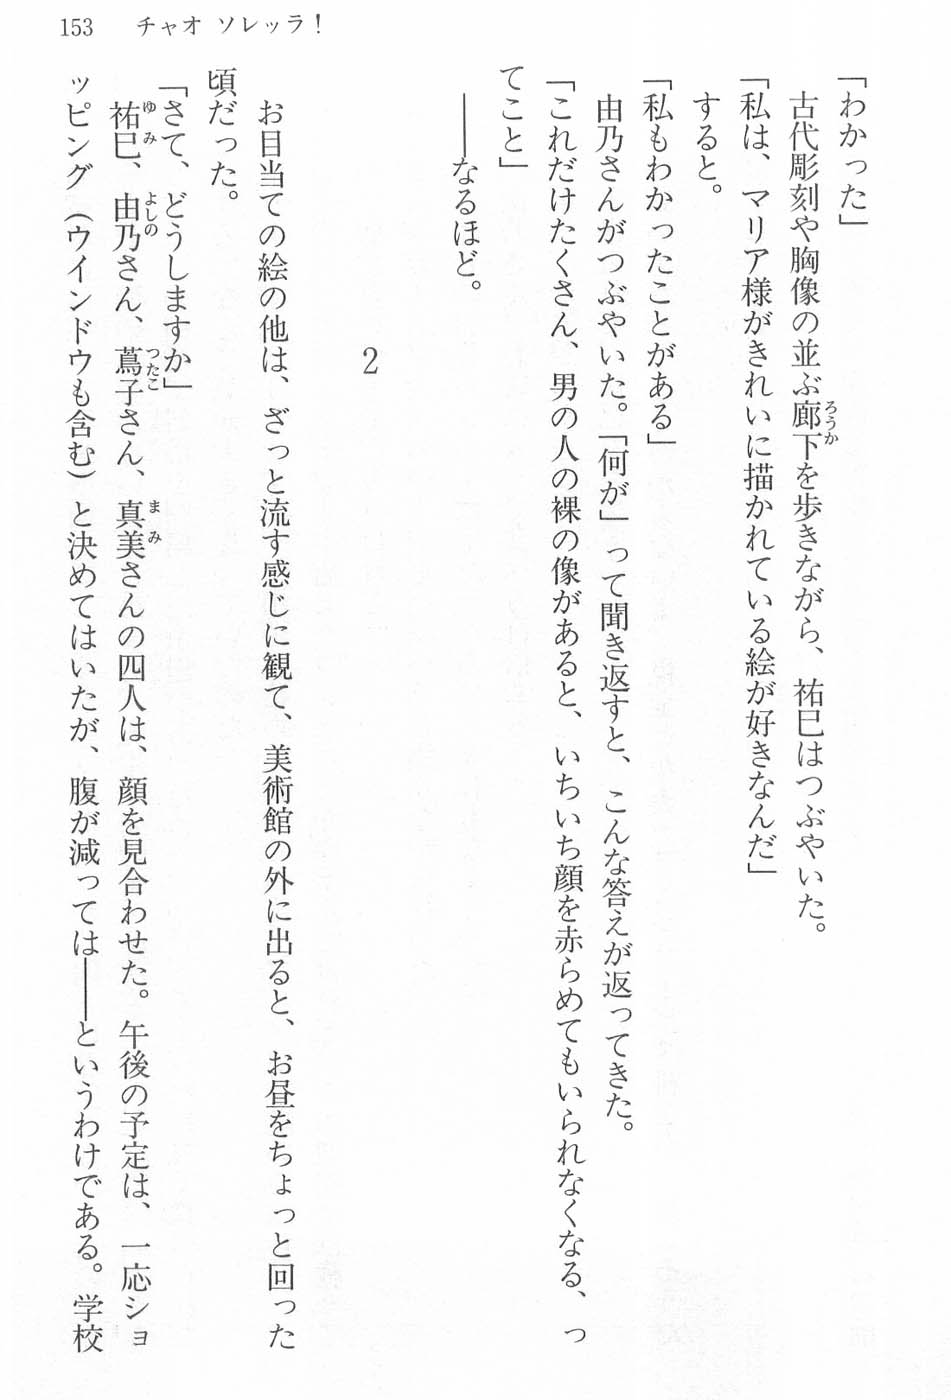 153　チャオ ソレッラ！
「わかった」
古代彫刻や胸像の並ぶ廊下を歩きながら、祐巳はつぶやいた。
「私は、マリア様がきれいに描かれている絵が好きなんだ」
すると。
「私もわかったことがある」
由乃さんがつぶやいた。「何が」って聞き返すと、こんな答えが返ってきた。
「これだけたくさん、男の人の裸の像があると、いちいち顔を赤らめてもいられなくなる、っ
てこと」
――なるほど。
2
お目当ての絵の他は、ざっと流す感じに観て、美術館の外に出ると、お昼をちょっと回った
頃だった。
「さて、どうしますか」
祐巳、由乃さん、蔦子さん、真美さんの四人は、顔を見合わせた。午後の予定は、一応ショ
ッピング（ウインドウも含む）と決めてはいたが、腹が減っては――というわけである。学校